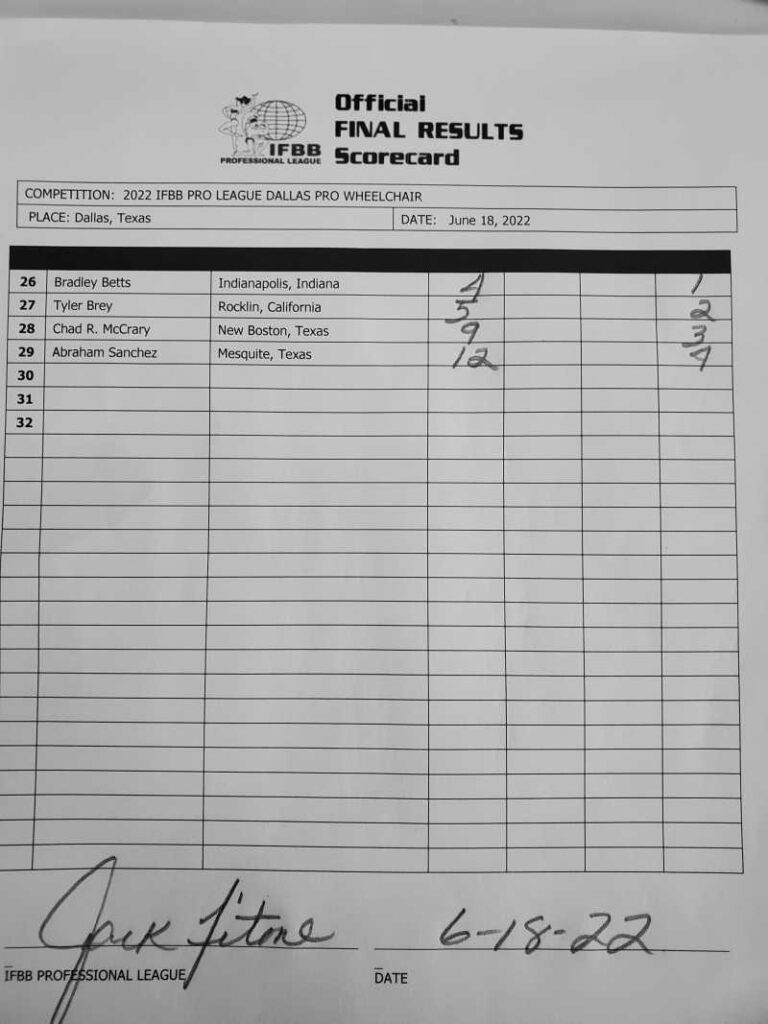 Official
FINAL RESULTS
Scorecard
IFBB
PROFESSIONAL LEAGUE
COMPETITION: 2022 IFBB PRO LEAGUE DALLAS PRO WHEELCHAIR
PLACE: Dallas, Texas DATE: June 18, 2022
26 Bradley Betts Indianapolis, Indiana 4 1
27 Tyler Brey Rocklin, California 5 2
28 Chad R. McCrary New Boston, Texas 9 3
29 Abraham Sanchez Mesquite, Texas 12 4
30
31
32
Jack Titone 6-18-22
IFBB PROFESSIONAL LEAGUE DATE